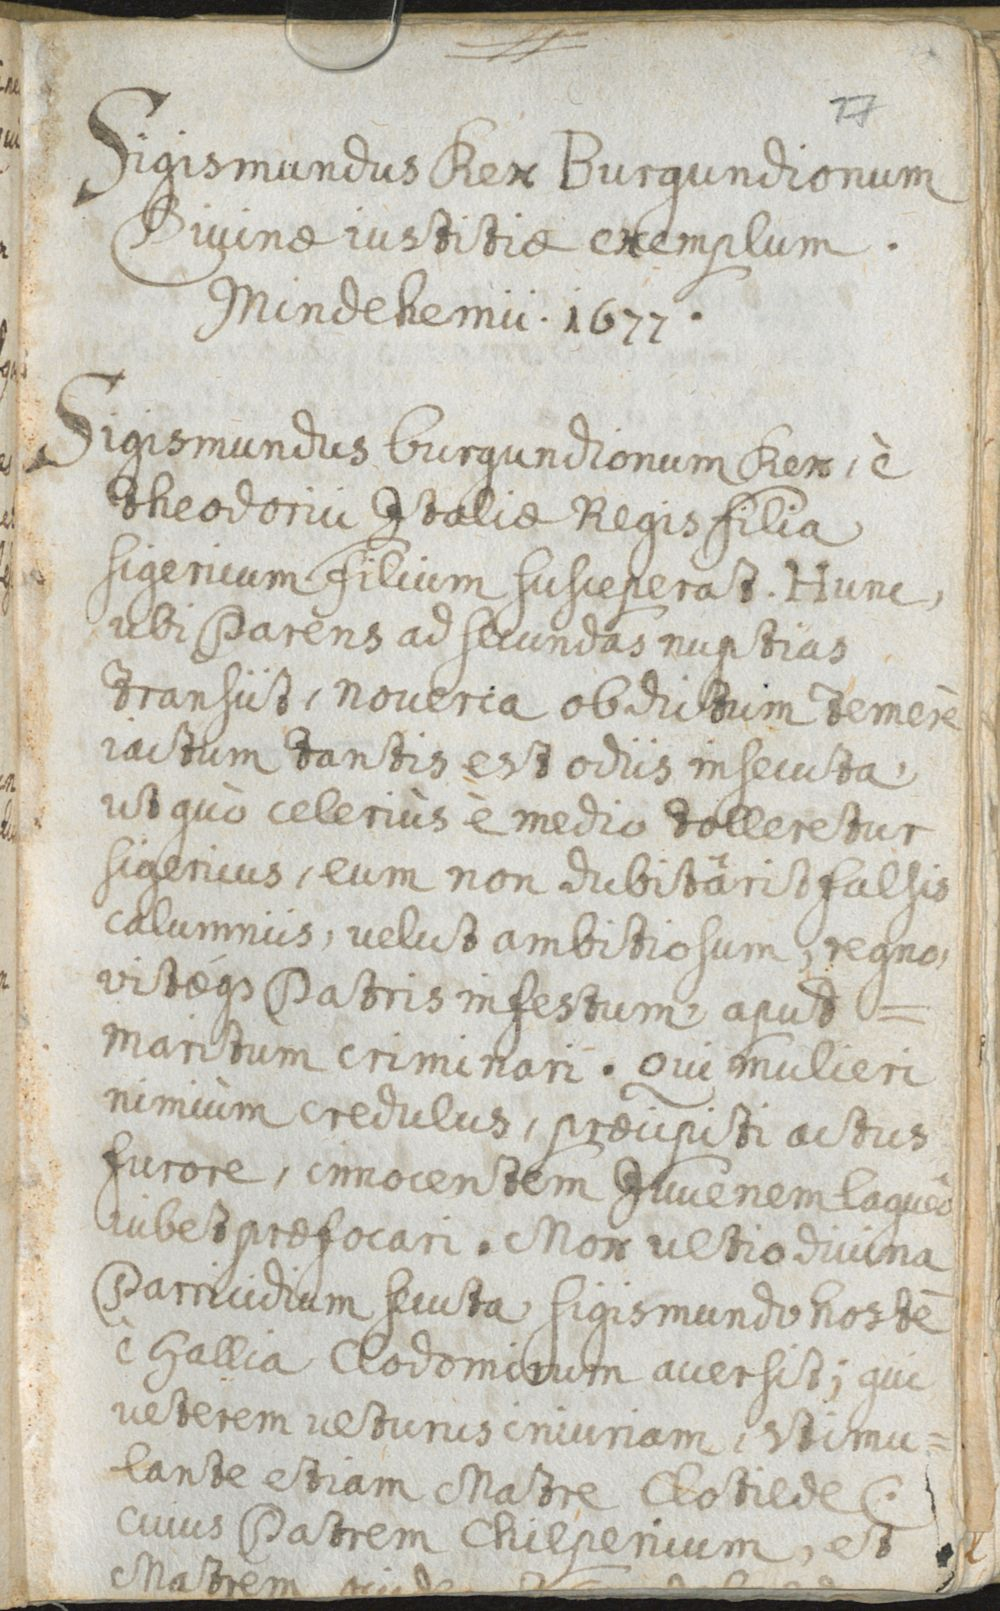 77
Sigismundus Rex Burgundionum
Diuinæ iustitiæ exemplum.
Mindehemii. 1677.
Sigismundus burgundionum Rex, è
theodorici Italiæ Regis filia
sigericum filium susceperat. Hunc,
ubi Parens ad secundas nuptias
transiit, nouerca ob dictum temerè
iactum tantis est odiis insecuta,
ut quò celeriùs è medio tolleretur
sigericus, eum non dubitârit falsis
calumniis, uelut ambitiosum, regno,
vitæq3 Patris infestum, apud =
maritum criminari. Qui mulieri
nimiùm credulus, præcipiti actus
furore, innocentem Iuuenem laqueô
iubet præfocari. Mox ultio diuina
Parricidium secuta, sigismundo hostē
è Gallia Clodomirum aversit; qui
ueterem ulturus iniuriam, stimu=
lante etiam Matre Clotilde (:
cuius Patrem Chilpericum, et
Matrem